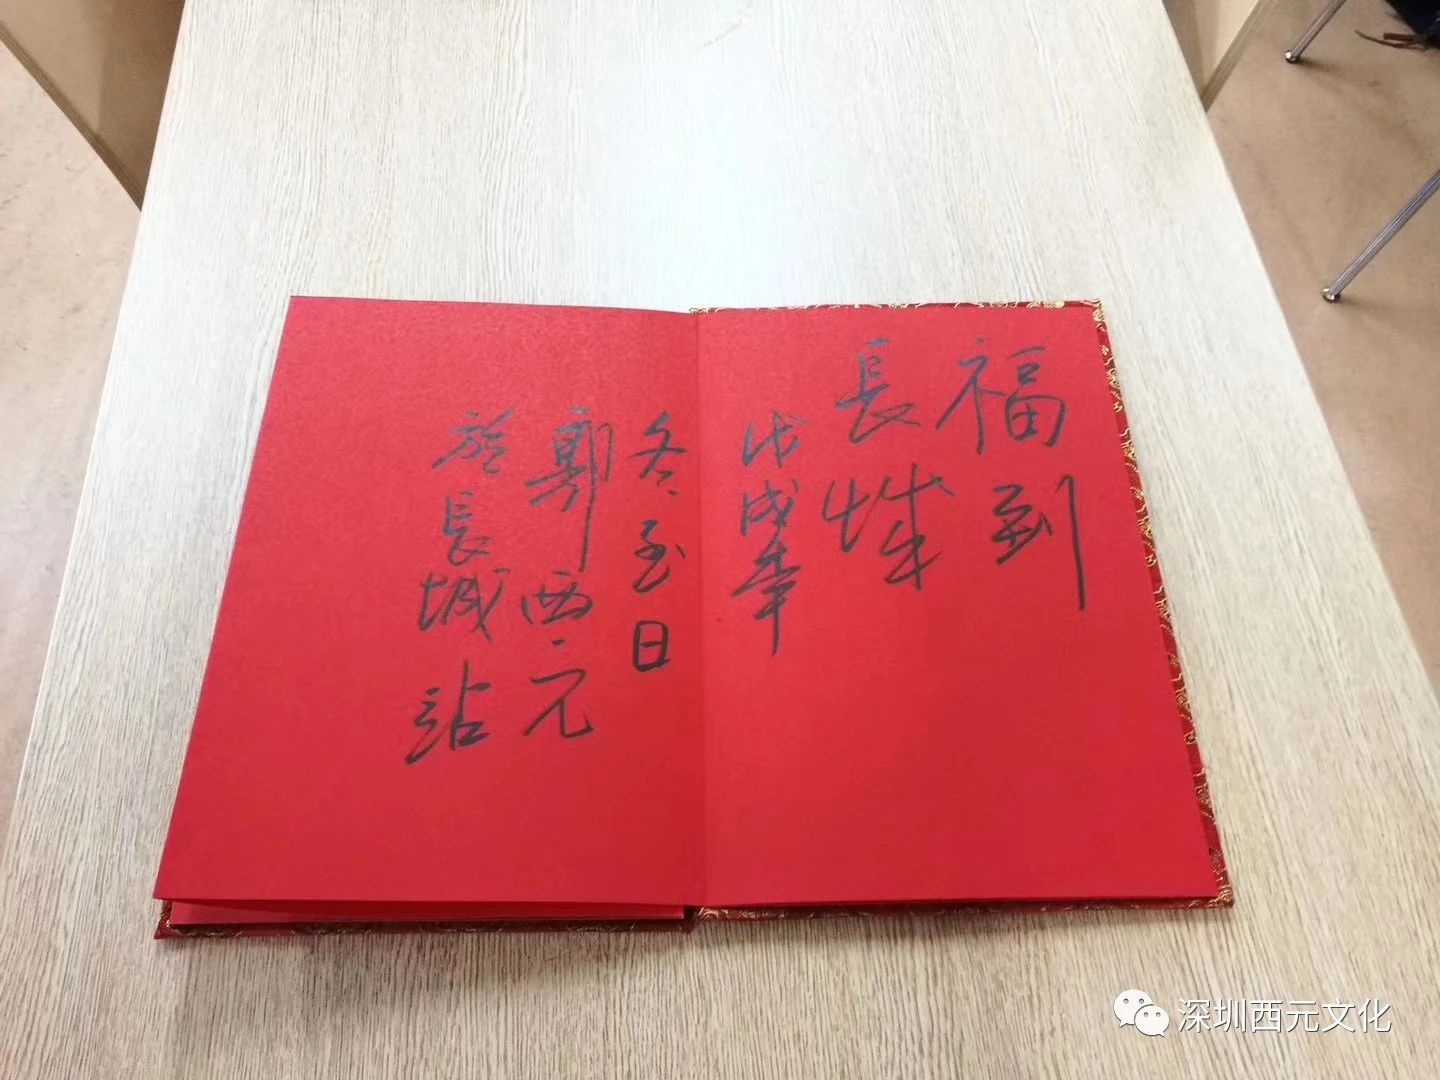 福到
長城
戊戌年
冬至日
郭西元
於長城站
深圳西元文化